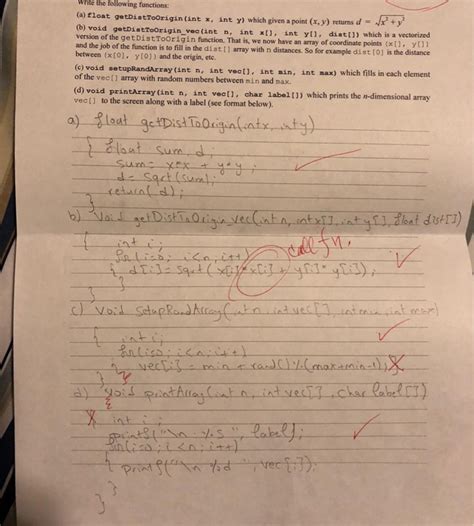 Write the following functions:
(a) float getDistToOrigin(int x, int y) which given a point (x, y) returns d = √x² + y²
(b) void getDistToOrigin_vec(int n, int x[], int y[], dist[]) which is a vectorized
version of the getDistToOrigin function. That is, we now have an array of coordinate points (x[], y[])
and the job of the function is to fill in the dist[] array with n distances. So for example dist[0] is the distance
between (x[0], y[0]) and the origin, etc.
(c) void setupRandArray(int n, int vec[], int min, int max) which fills in each element
of the vec[] array with random numbers between min and max.
(d) void printArray(int n, int vec[], char label[]) which prints the n-dimensional array
vec[] to the screen along with a label (see format below).
a) float getDistToOrigin(int x, int y)
{ float sum, d;
sum = x*x + y*y ;
d = sqrt(sum);
return( d );
}
b) Void getDistToOrigin_vec(int n, int x[], int y[], float dist[])
{ int i; call fn.
for(i=0; i<n; i++)
{ d[i] = sqrt( x[i]*x[i] + y[i]* y[i]);
}
}
c) void SetupRandArray( int n, int vec[], int min, int max)
{ int i;
for(i=0; i<n; i++)
{ vec[i] = min + rand()%(max+min-1);
}
d) void printArray(int n, int vec[], char label[])
{ int i ;
printf("\n %s ", label);
for(i=0; i<n; i++)
{ printf("\n %d ", vec[i]);
}
}